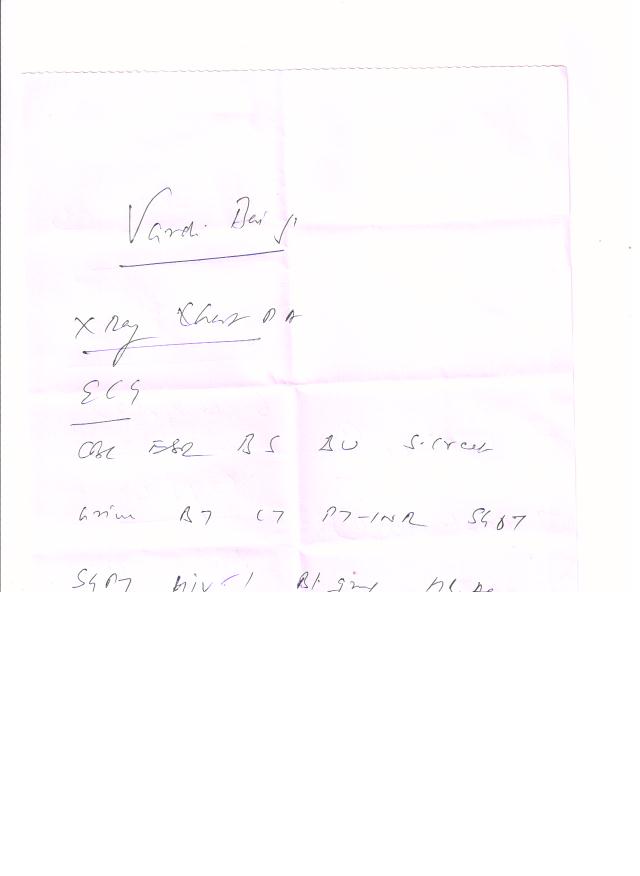 Vardi Bai ji
X Ray Chest PA
ECG
CBC ESR BS BU S. Creat
Urine BT CT PT-INR SGOT
SGPT HIV Bl. group